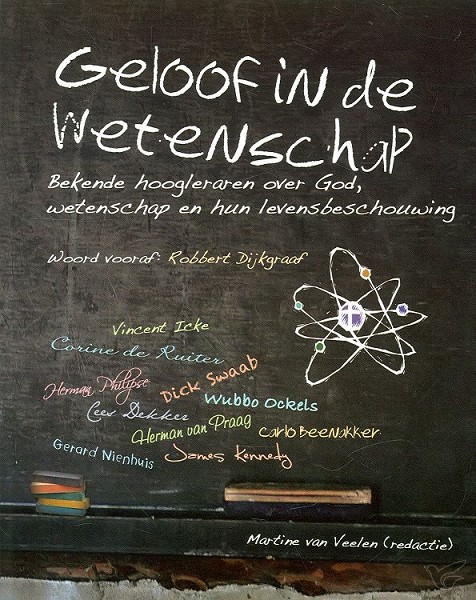 Geloof in de
Wetenschap
Bekende hoogleraren over God,
wetenschap en hun levensbeschouwing
Woord vooraf: Robbert Dijkgraaf
Vincent Icke
Corine de Ruiter
Herman Philipse
Dick Swaab
Cees Dekker
Wubbo Ockels
Herman van Praag
Carlo Beenakker
Gerard Nienhuis
James Kennedy
Martine van Veelen (redactie)